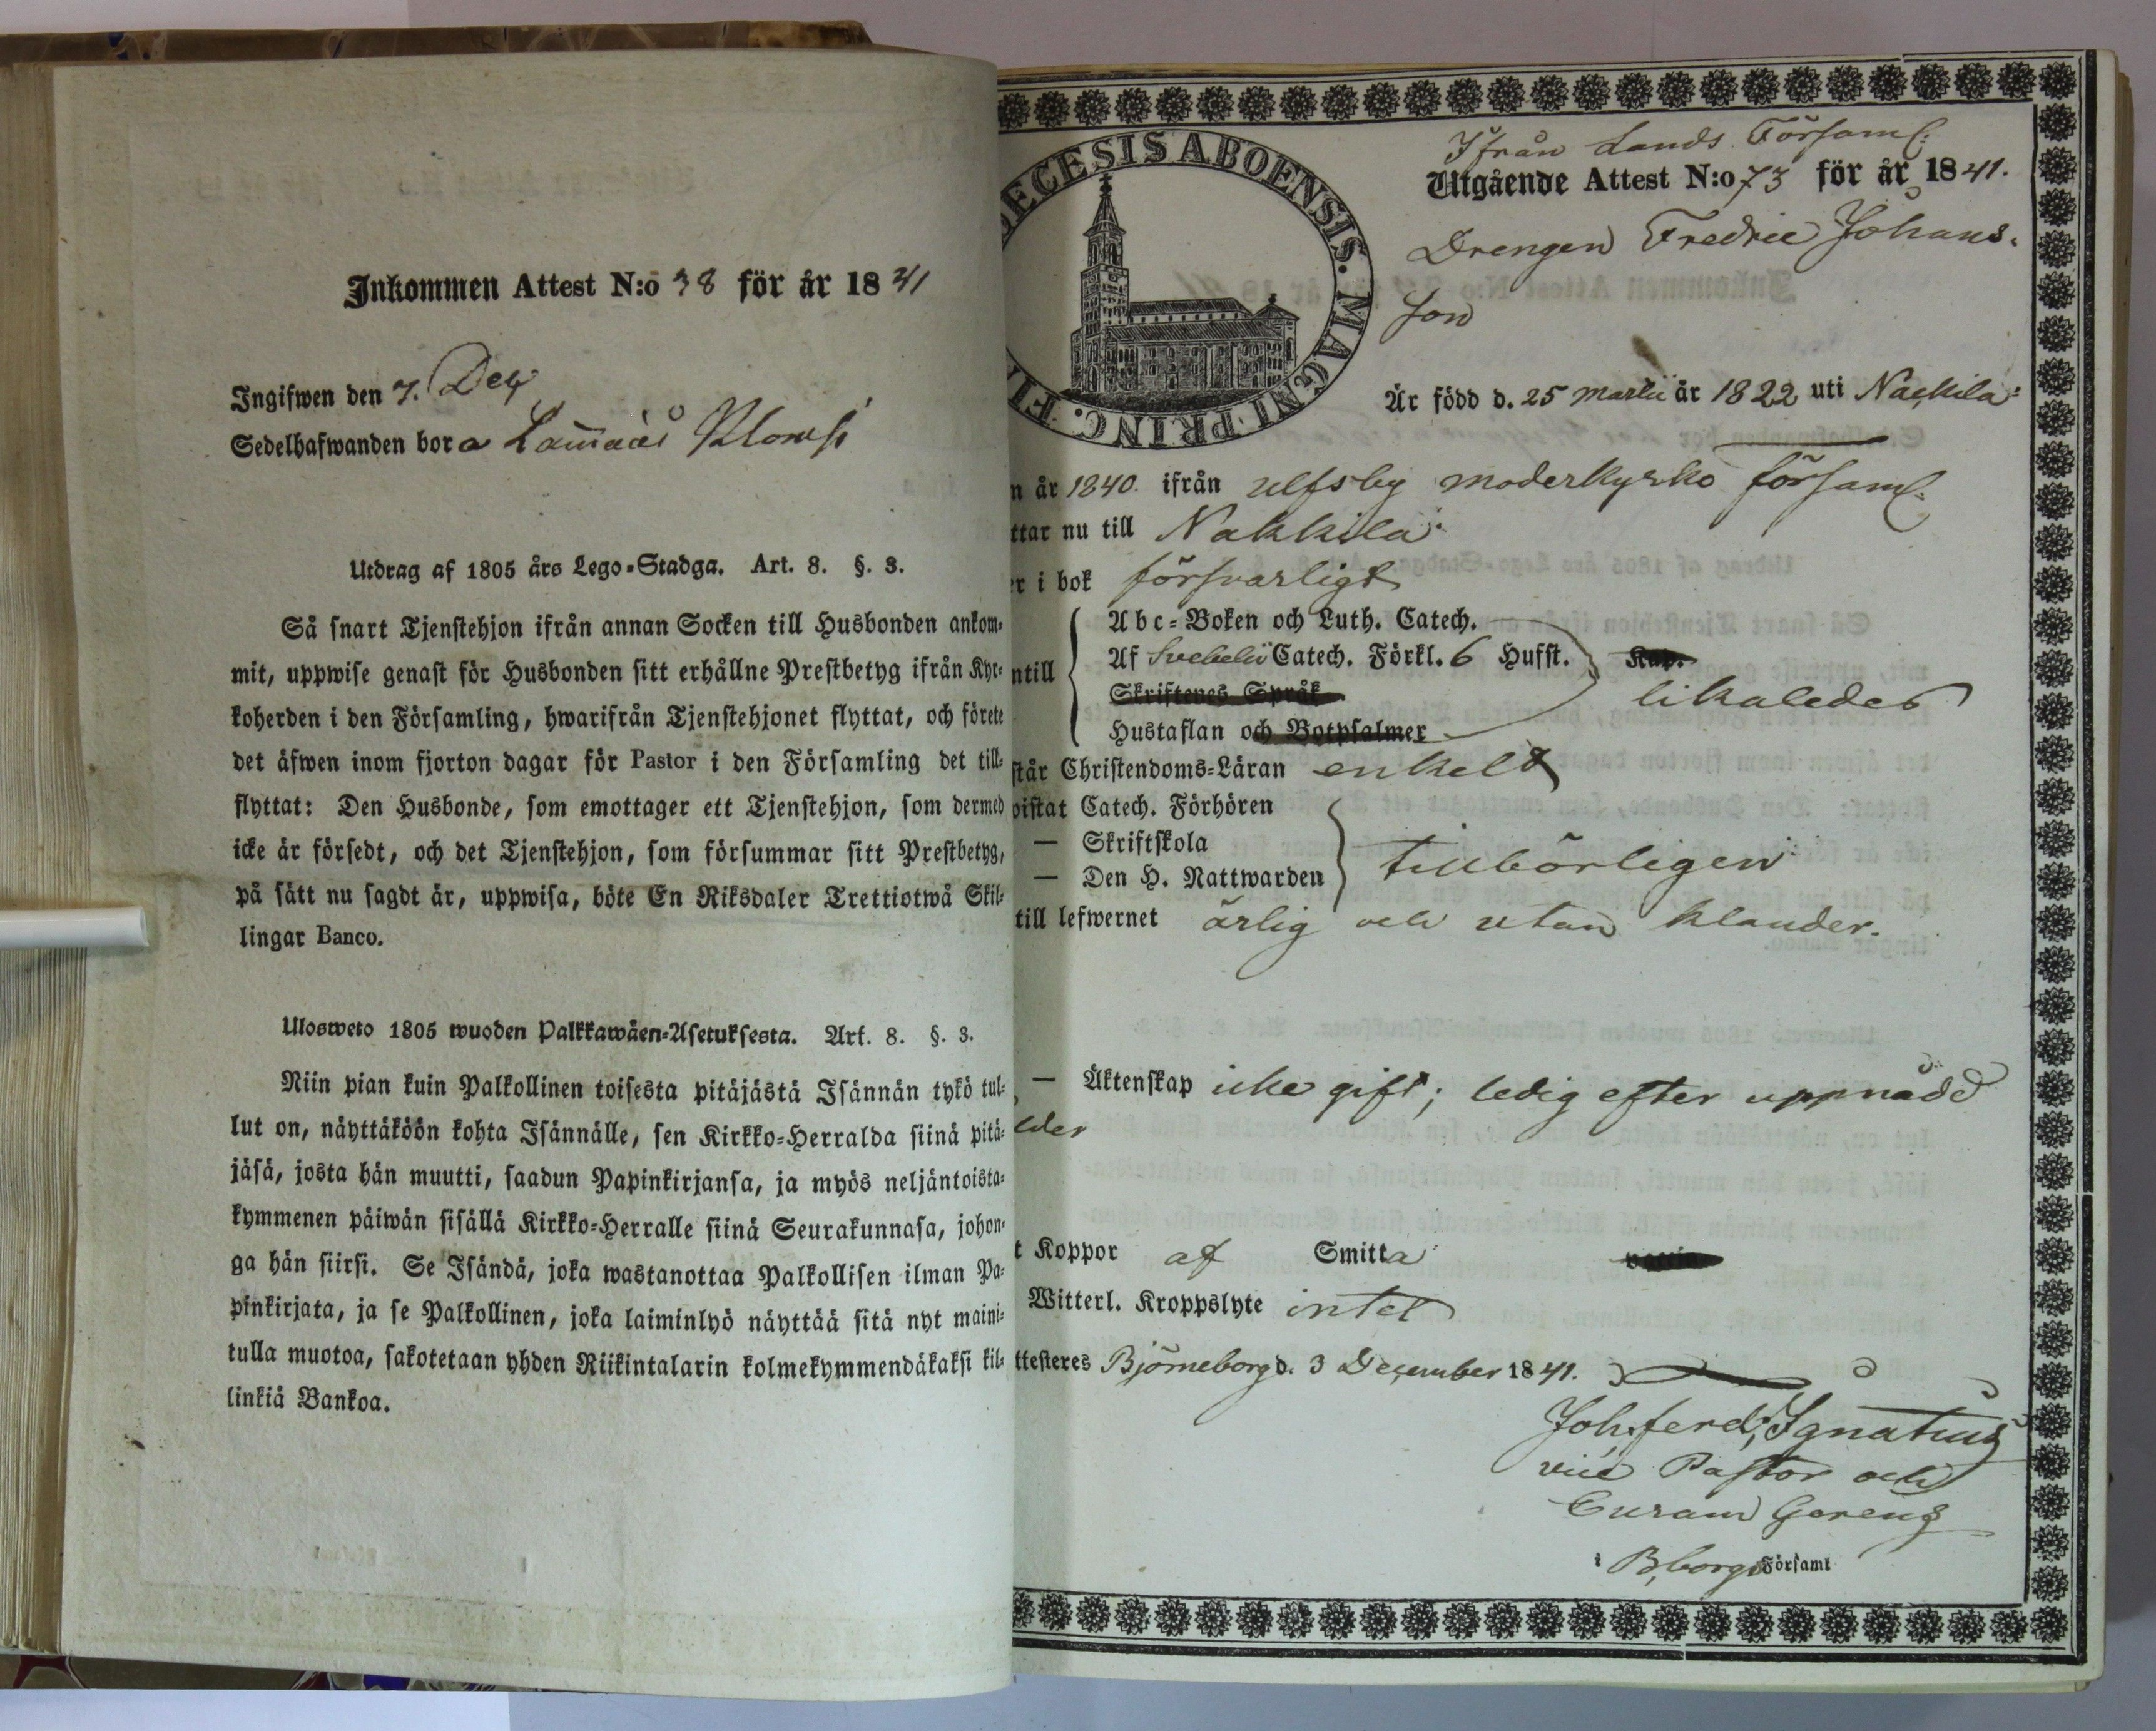 Inkommen Attest N:o 38 för år 1841
Ingifwen den 7. Dec
Sedelhafwanden bor a
Utdrag af 1805 års Lego-Stadga. Art. 8. §. 3.
Så snart Tjenstehjon ifrån annan Socken till Husbonden ankom-
mit, uppwise genast för Husbonden sitt erhållne Prestbetyg ifrån Kyr-
koherden i den Församling, hwarifrån Tjenstehjonet flyttat, och förete
det äfwen inom fjorton dagar för Pastor i den Församling det till-
flyttat: Den Husbonde, som emottager ett Tjenstehjon, som dermed
icke är försedt, och det Tjenstehjon, som försummar sitt Prestbetyg,
på sätt nu sagdt är, uppwisa, böte En Riksdaler Trettiotwå Skil-
lingar Banco.
Ulosweto 1805 wuoden Palkkawäen-Asetuksesta. Art. 8. §. 3.
Niin pian kuin Palkollinen toisesta pitäjästä Isännän tykö tul-
lut on, näyttäköön kohta Isännälle, sen Kirkko-Herralda siinä pitä-
jäsä, josta hän muutti, saadun Papinkirjansa, ja myös neljäntoista-
kymmenen päiwän sisällä Kirkko-Herralle siinä Seurakunnasa, johon-
ga hän siirsi. Se Isändä, joka wastanottaa Palkollisen ilman Pa-
pinkirjata, ja se Palkollinen, joka laiminlyö näyttää sitä nyt maini-
tulla muotoa, sakotetaan yhden Riikintalarin kolmekymmendäkaksi kil-
linkiä Bankoa.
ECESIS ABOENSIS. MAGNI PRINC. FI
Ifrån Lands Församl:
Utgående Attest N:o 73 för år 1841.
Drengen Fredric Johans-
son
Är född d. 25 Martii år 1822 uti Nackila
n år 1840. ifrån Ulfsby moderkyrko församl:
ttar nu till Nakkila
r i bok försvarligt
ntill
Abc-Boken och Luth. Catech.
Af Svebelii Catech. Förkl. 6 Hufst. Kap.
Skriftenes Språk likaledes
Hustaflan och Botpsalmer
står Christendoms-Läran enkelt
wistat Catech. Förhören
— Skriftskola
— Den H. Nattwarden tillbörligen
till lefwernet ärlig och utan klander.
— Äktenskap icke gift; ledig efter uppnådd
lder
t Koppor af Smitta
Witterl. Kroppslyte intet
ttesteres Björneborg d. 3 December 1841.
Joh. ferd; Ignatius
vice Pastor och
Curam Gerens
i B,borgs Församl